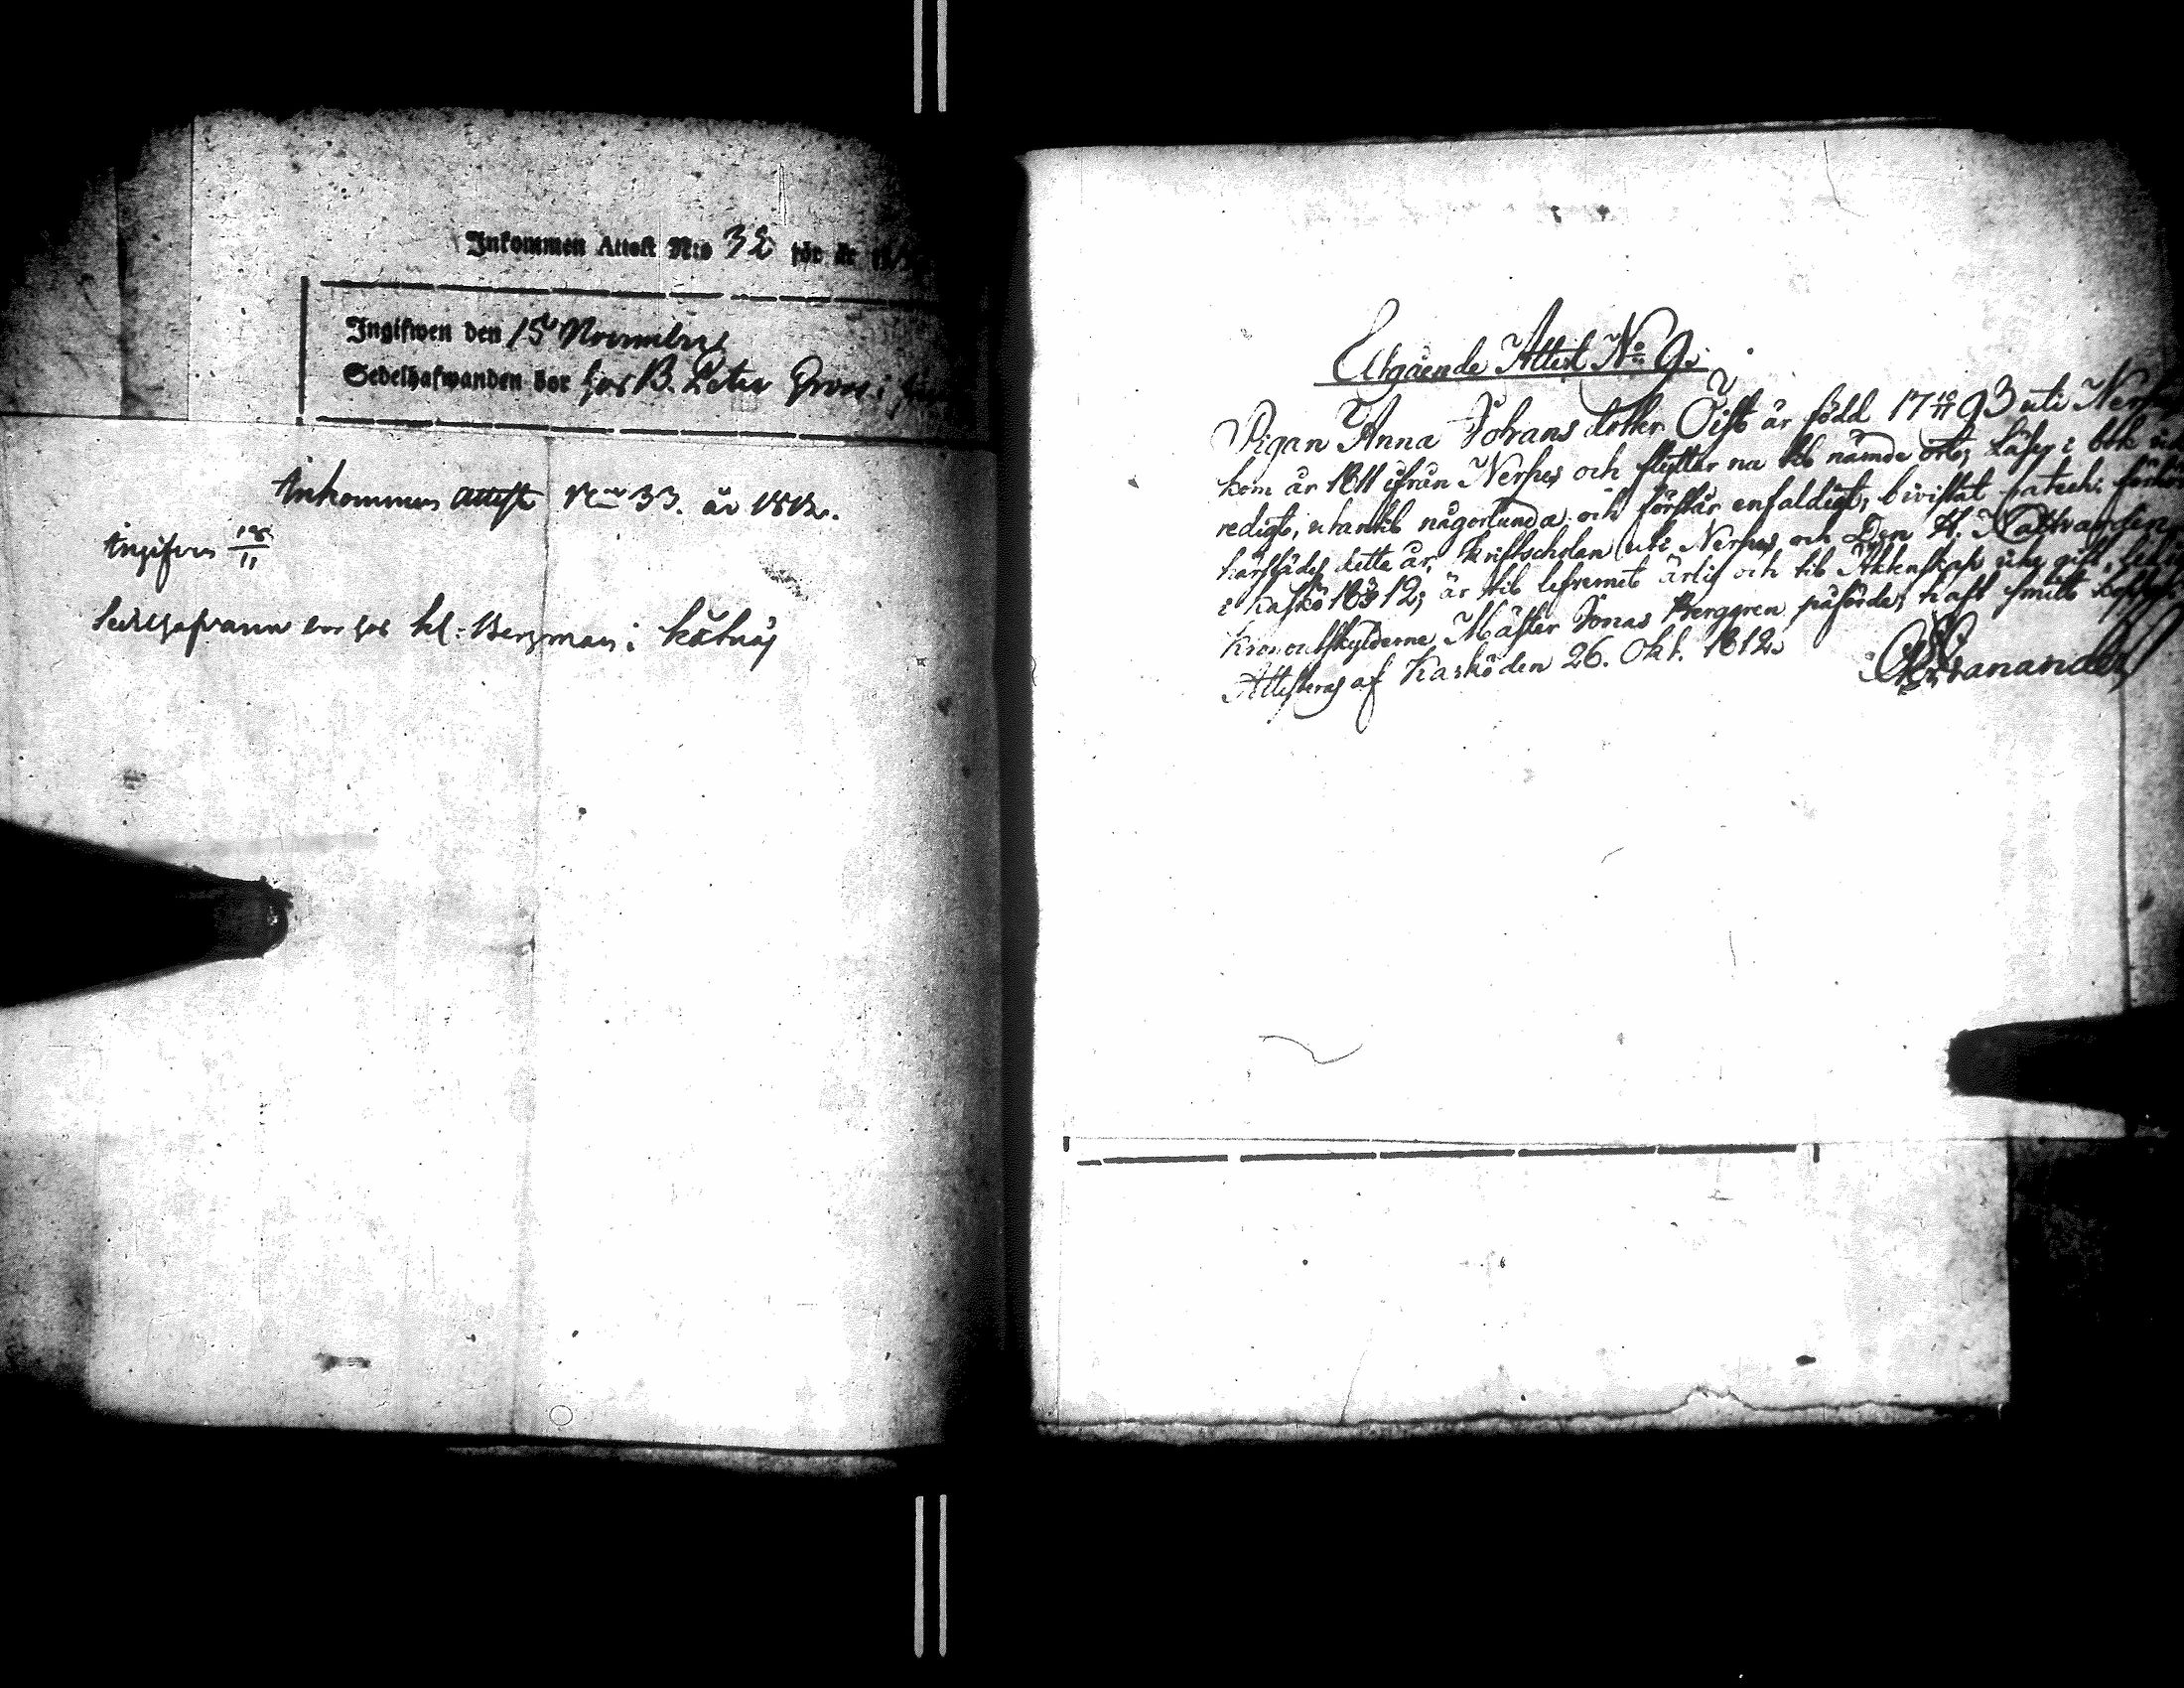 Inkommen Attest N:o 32 för år
Ingifwen den 15 Novembris
Sedelhafwanden bor hos B. Peter Gros i
Inkommen attest N:o 33. år 1812.
Ingifven 18/11
Sedelhafvaren bor hos kl: Bergman i
Utgående Attest No 9.
Pigan Anna Johans dotter Öist är född 17 93 uti
kom år 1811 ifrån Nerpes och flyttar nu till nämde ort; Läser i bok
redigt, utantill någorlunda, och förstår enfaldigt; bivistat catech:
härstädes detta år, skriftscholan uti Nerpes och Den H. Nattvarden
i Kaskö 1812; är till lefvernet ärlig och till Äktenskap
kronoutskylderne Mäster Jonas Berggren påförde; haft
Attesteras af Kaskö den 26. Okt. 1812.